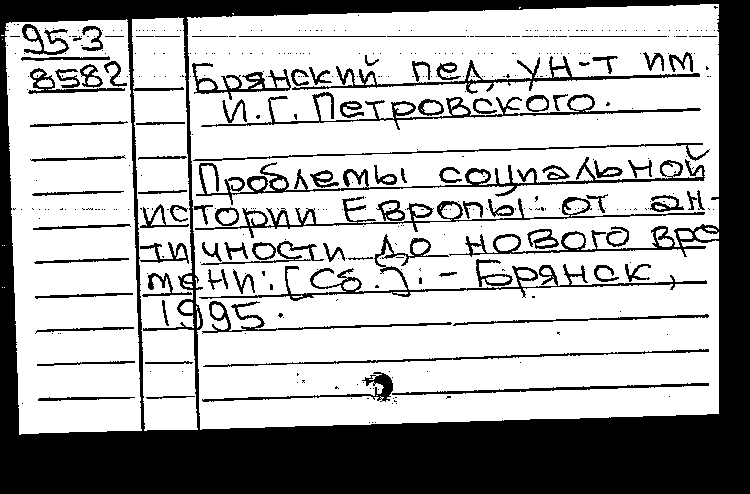 95-3
8582
Брянский пед. ун-т им.
И.Г. Петровского.
Проблемы социальной
истории Европы: от ан-
тичности до нового вре
мени: [Сб.]. - Брянск,
1995.